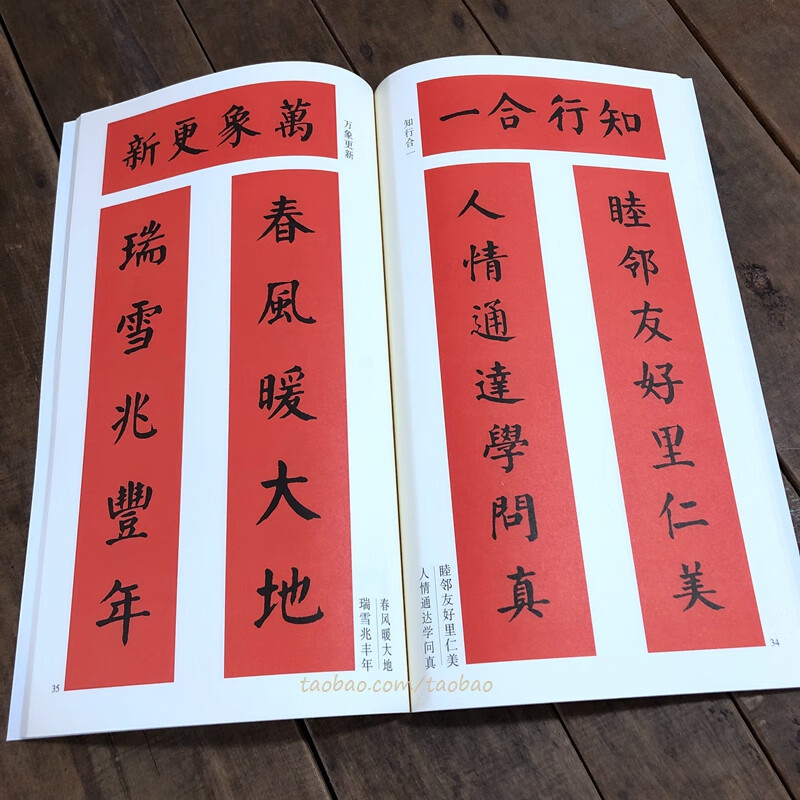 知行合一
知行合一
睦邻友好里仁美
人情通達學問真
睦邻友好里仁美
人情通达学问真
34
萬象更新
万象更新
春風暖大地
瑞雪兆豐年
春风暖大地
瑞雪兆丰年
35
taobao.com/taobao